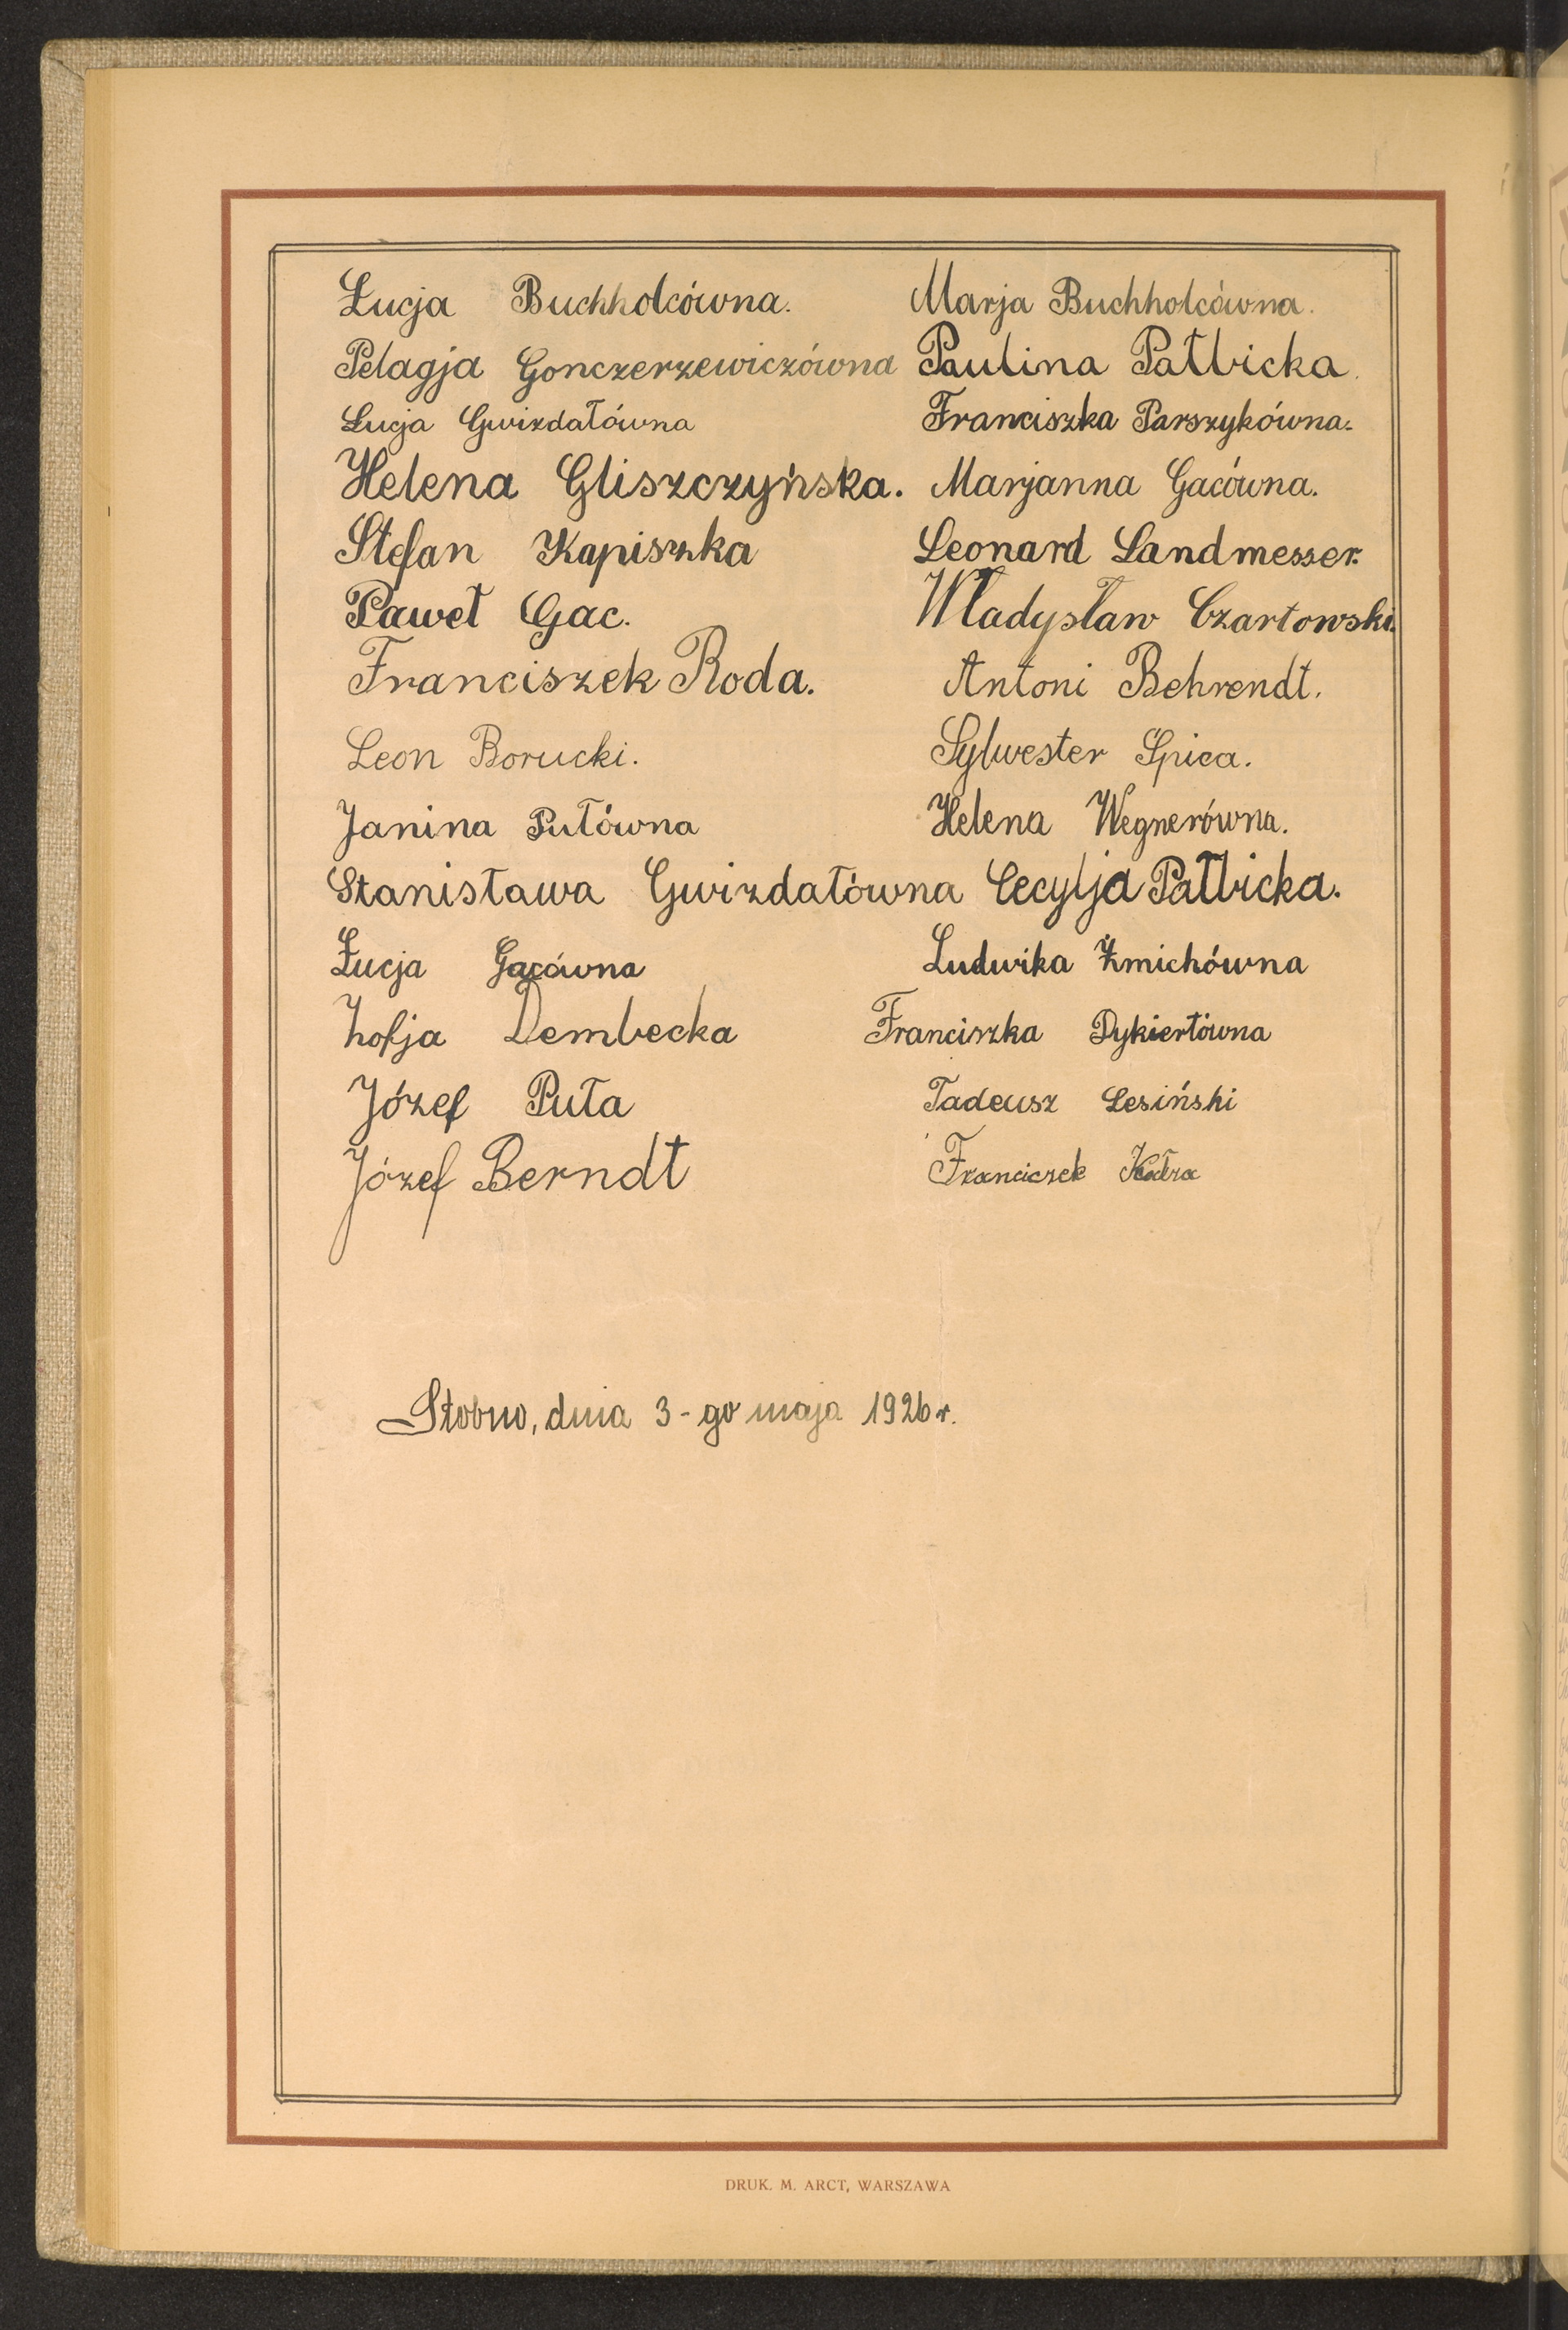 Łucja Buchholcówna. Marja Buchholcówna.
Pelagja Gonczerzewiczówna Paulina Pałbicka.
Łucja Gwizdałówna Franciszka Parszykówna.
Helena Gliszczyńska. Marjanna Gacówna.
Stefan Kapiszka Leonard Landmesser.
Paweł Gac. Władysław Czartowski.
Franciszek Roda. Antoni Behrendt.
Leon Borucki. Sylwester Spica.
Janina Putówna Helena Wegnerówna.
Stanisława Gwizdałówna Cecylja Pałbicka.
Łucja Gacówna Ludwika Żmichówna
Zofja Dembecka Franciszka Dykiertówna
Józef Puta Tadeusz Lesiński
Józef Berndt Franciszek
Stobno, dnia 3-go maja 1926 r.
DRUK. M. ARCT, WARSZAWA